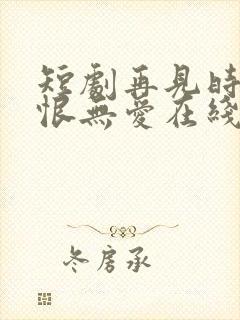 短劇再見時
恨無愛在綫
冬房承